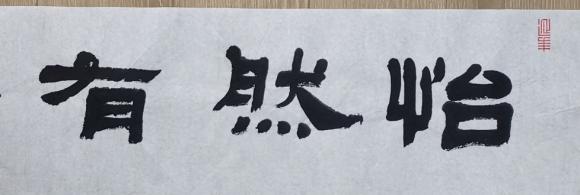 怡然有